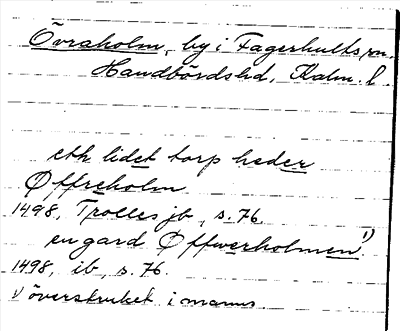 Övraholm, by i Fagerhults sn.
Handbörds hd, Kalm. l.
etk lidet torp heder
Øffreholm
1498, Trolles jb, s. 76.
en gard Øffwerholmen 1)
1498, ib, s. 76.
1) överstruket i manus.